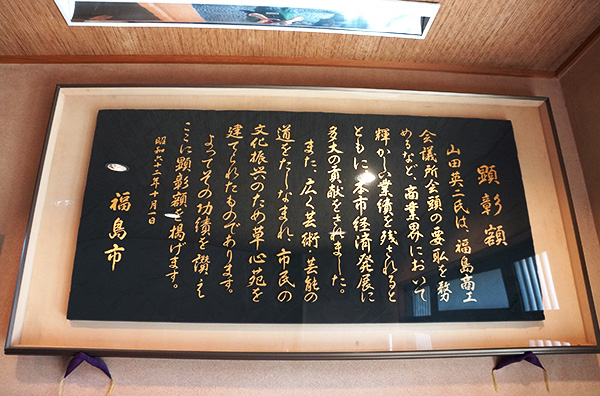 顕彰額
山田英二氏は、福島商工
会議所会頭の要職を務
めるなど、商業界において
輝かしい業績を残されると
ともに本市経済発展に
多大の貢献をされました。
また、広く芸術・芸能の
道をたしなまれ、市民の
文化振興のため草心苑を
建てられたものであります。
よってその功績を讃え
ここに顕彰額を掲げます。
昭和六十二年八月一日
福島市